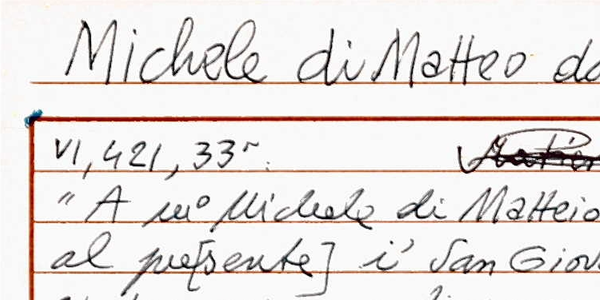 Michele di Matteo da
VI, 421, 33r.
"A mº Michele di Matteio
al pre[sente] i' San Giov